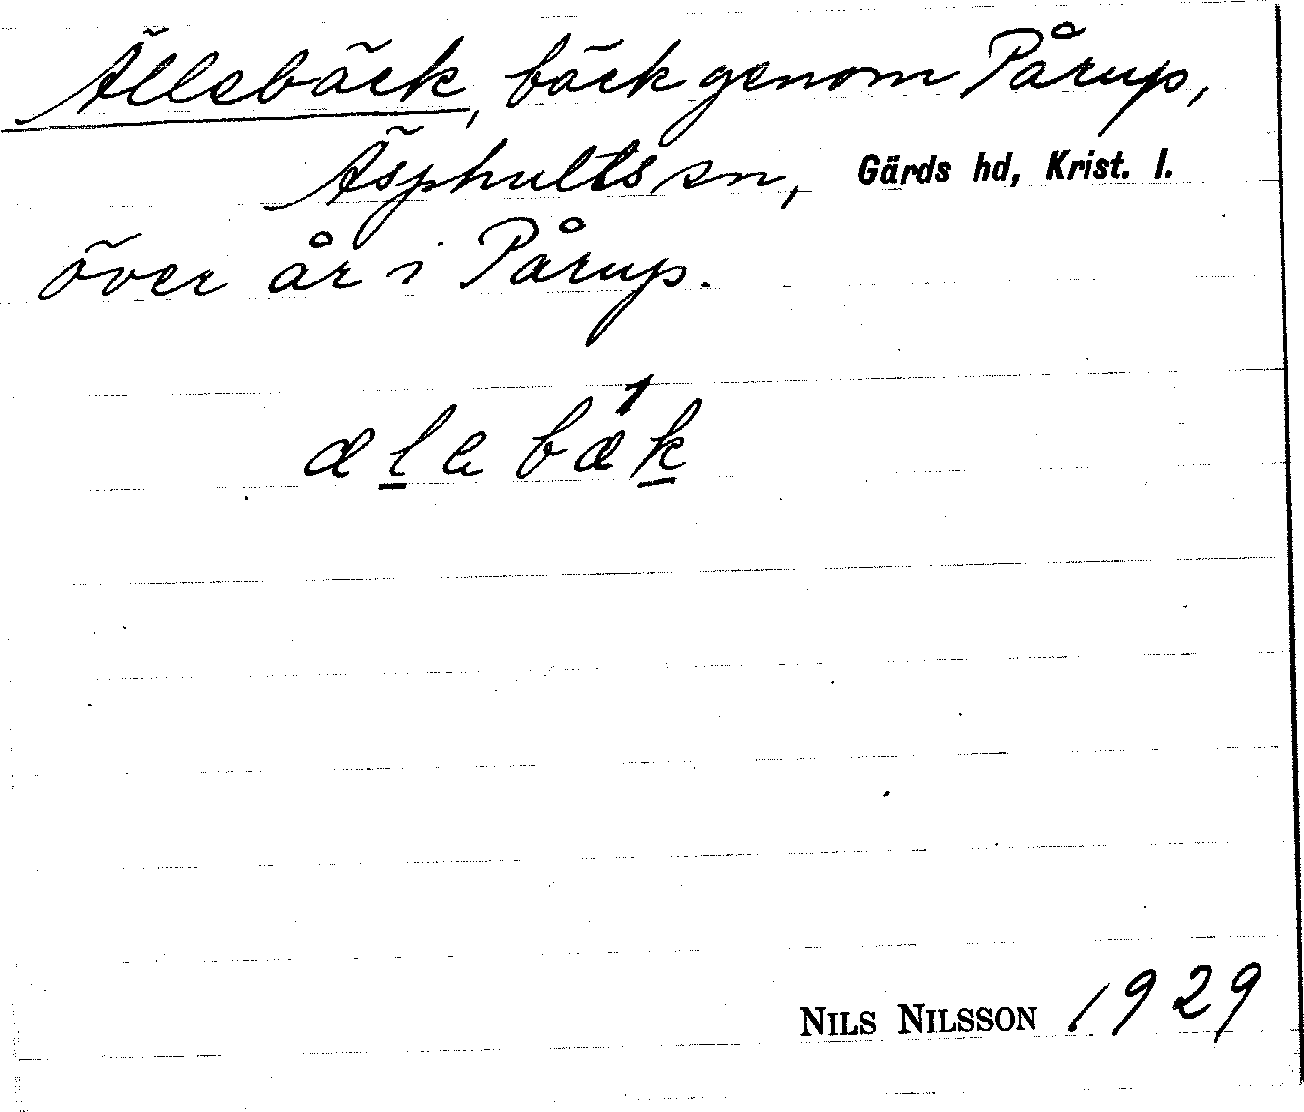 Ällebäck, bäck genom Pårup,
Äsphults sn, Gärds hd, Krist. l.
över år i Pårup.
æləbæ´k
NILS NILSSON 1929